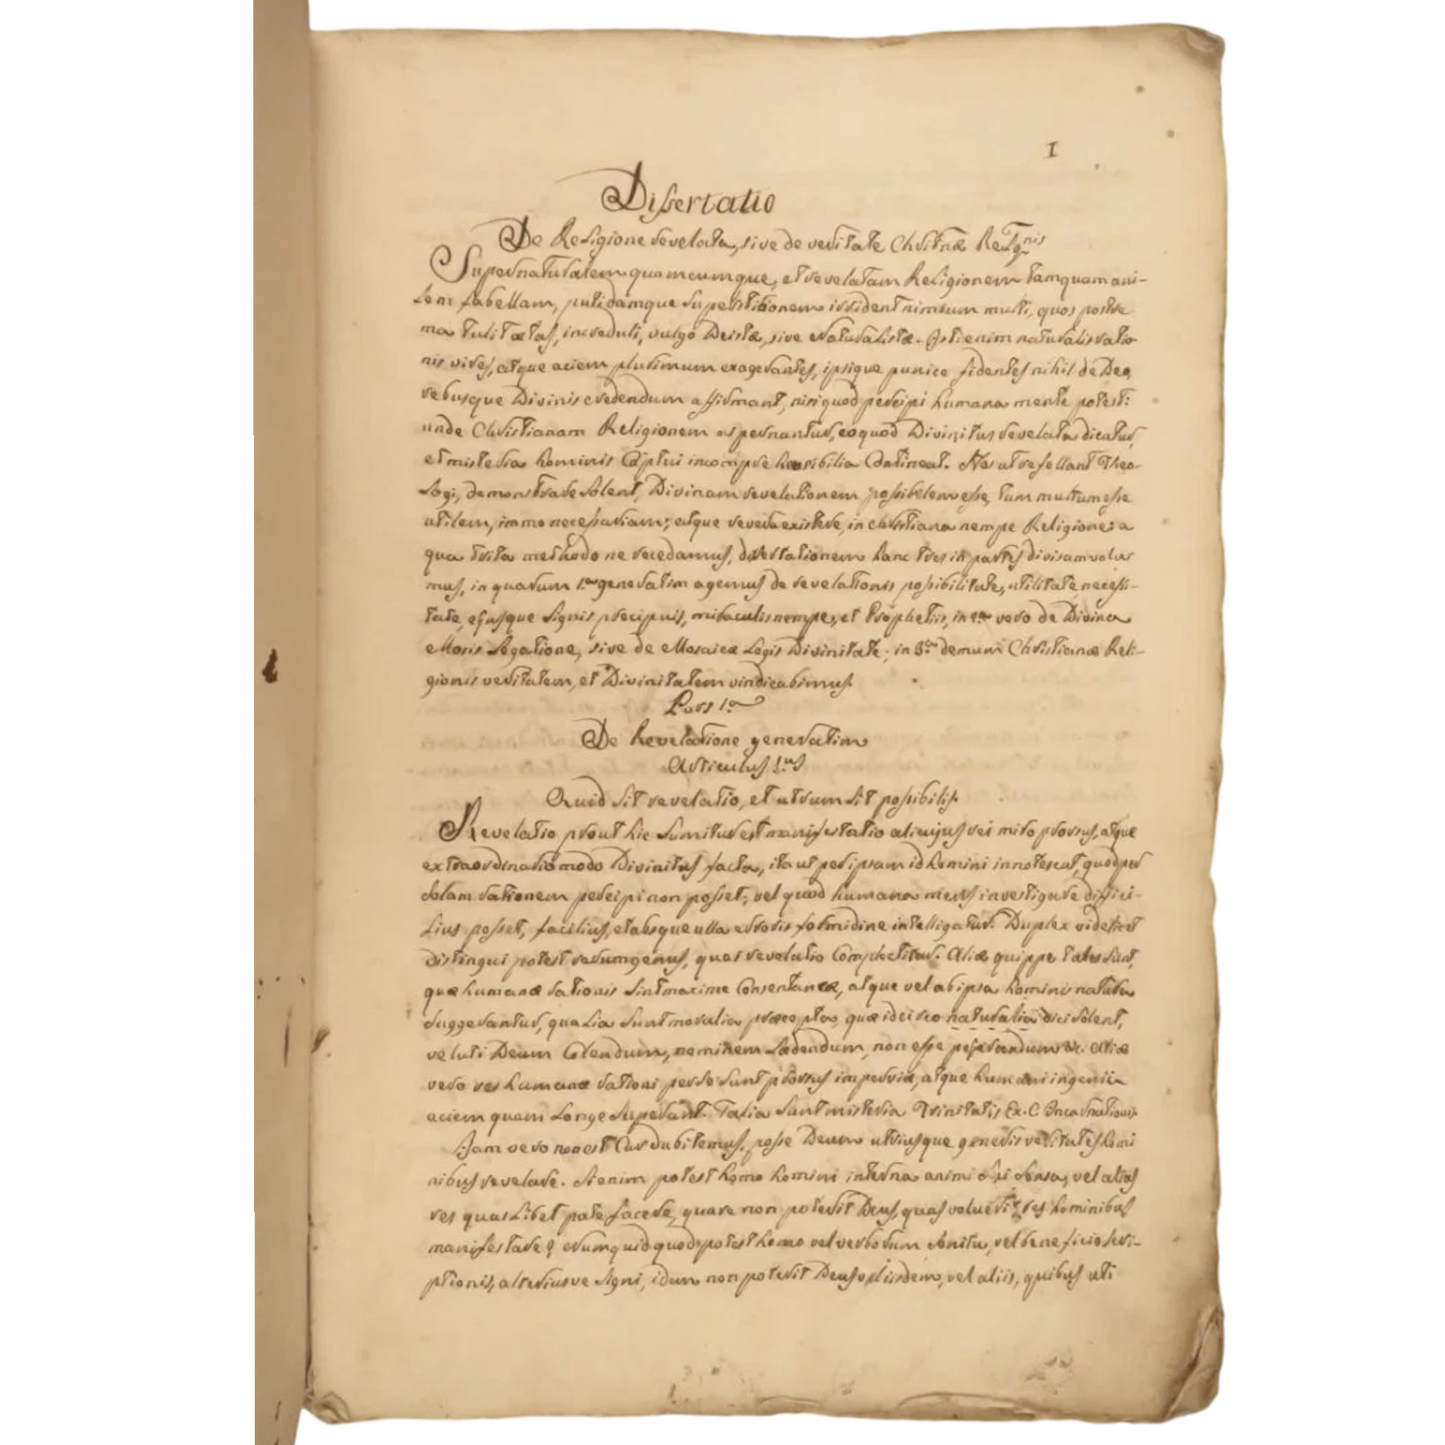 1
Dissertatio
De Religione revelata, sive de veritate Chritnæ Relgnis
Supernaturalem quamcumque, et revelatam Religionem tamquam ani-
lem fabellam, putidamque superstitionem irrident nimium multi, quos postre
ma tulit ætas, increduli, vulgo Deistæ, sive Naturalistæ. Isti enim naturalis ratio
nis vires, atque aciem plurimum exagerantes, ipsique punice fidentes nihil de Deo,
rebusque Divinis credendum affirmant, nisi quod percipi humana mente potest:
unde Christianam Religionem aspernantur, eo quod Divinitus revelata dicatur,
et misteria hominis Captui incomprehensibilia Contineat. Hos ut refellant Theo-
logi, demonstrare solent, Divinam revelationem possibilem esse, tum multum esse
utilem, immo necessariam; atque revera existere, in christiana nempe Religione: a
qua trita methodo ne recedamus, dissertationem hanc tres in partes divisam volu
mus, in quarum 1.a generatim agemus de revelationis possibilitate, utilitate, necessi-
tate, ejusque signis precipuis, miraculis nempe, et Prophetiis, in 2.a vero de Divina
Mosis Legatione, sive de Mosaicæ Legis Divinitate; in 3.a demum Christianæ Reli-
gionis veritatem, et Divinitatem vindicabimus.
Pars 1.a
De Revelatione generatim
Articulus 1.us
Quid sit revelatio, et utrum sit possibilis.
Revelatio prout hic sumitur est manifestatio alicujus rei miro prorsus, atque
extraordinario modo Divinitus facta, ita ut per ipsam id homini innotescat, quod per
solam rationem percipi non posset; vel quod humana mens investigare diffici-
lius posset, facilius, et absque ulla erroris formidine intelligatur. Duplex videlicet
distingui potest rerum genus, quas revelatio Complectitur. Aliæ quippe tales sunt,
quæ humanæ rationis sint maxime Consentaneæ, atque vel ab ipsa hominis natura
suggerantur, qualia sunt moralia præcepta, quæ idcirco naturalia dici solent,
veluti Deum Colendum, neminem Lædendum, non esse pejerandum &c. Aliæ
vero res humanæ rationi per se sunt prorsus imperviæ, atque humani ingenii
aciem quam Longe superant. Talia sunt misteria Trinitatis, Ex. C. Incarnationis.
Jam vero non est Cur dubitemus, posse Deum utriusque generis veritates homi
nibus revelare. Si enim potest homo homini interna animi sui sensa, vel alias
res quas Libet patefacere, quare non poterit Deus, quas voluerit, res hominibus
manifestare? Numquid quod potest homo vel verborum sonitu, vel beneficio scri-
ptionis, alteriusve signi, idum non poterit Deus iisdem, vel aliis, quibus uti